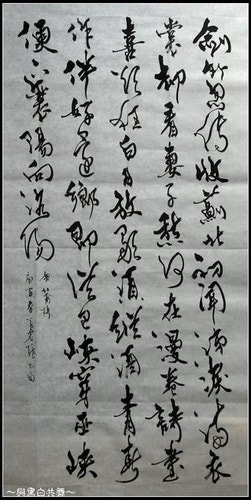 劍外忽傳收薊北初聞涕淚滿衣
裳却看妻子愁何在漫卷詩書
喜欲狂白日放歌須縱酒青春
作伴好還鄉即從巴峽穿巫峽
便下襄陽向洛陽
～與黑白共舞～